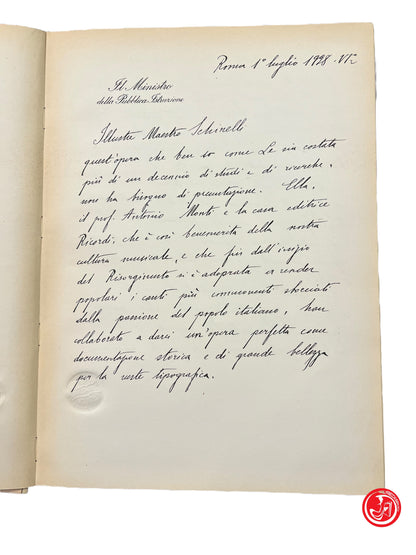 Roma 1º luglio 1928 - VIº
Il Ministro
della Pubblica Istruzione
Illustre Maestro Schinelli
quest'opera che ben so come Le sia costata
più di un decennio di studi e di ricerche,
non ha bisogno di presentazione. Ella,
il prof. Antonio Monti e la casa editrice
Ricordi, che è così benemerita della nostra
cultura musicale, e che fin dall'inizio
del Risorgimento si è adoprata a render
popolari i canti più commoventi sbocciati
dalla passione del popolo italiano, han
collaborato a darci un'opera perfetta come
documentazione storica e di grande bellezza
per la veste tipografica.